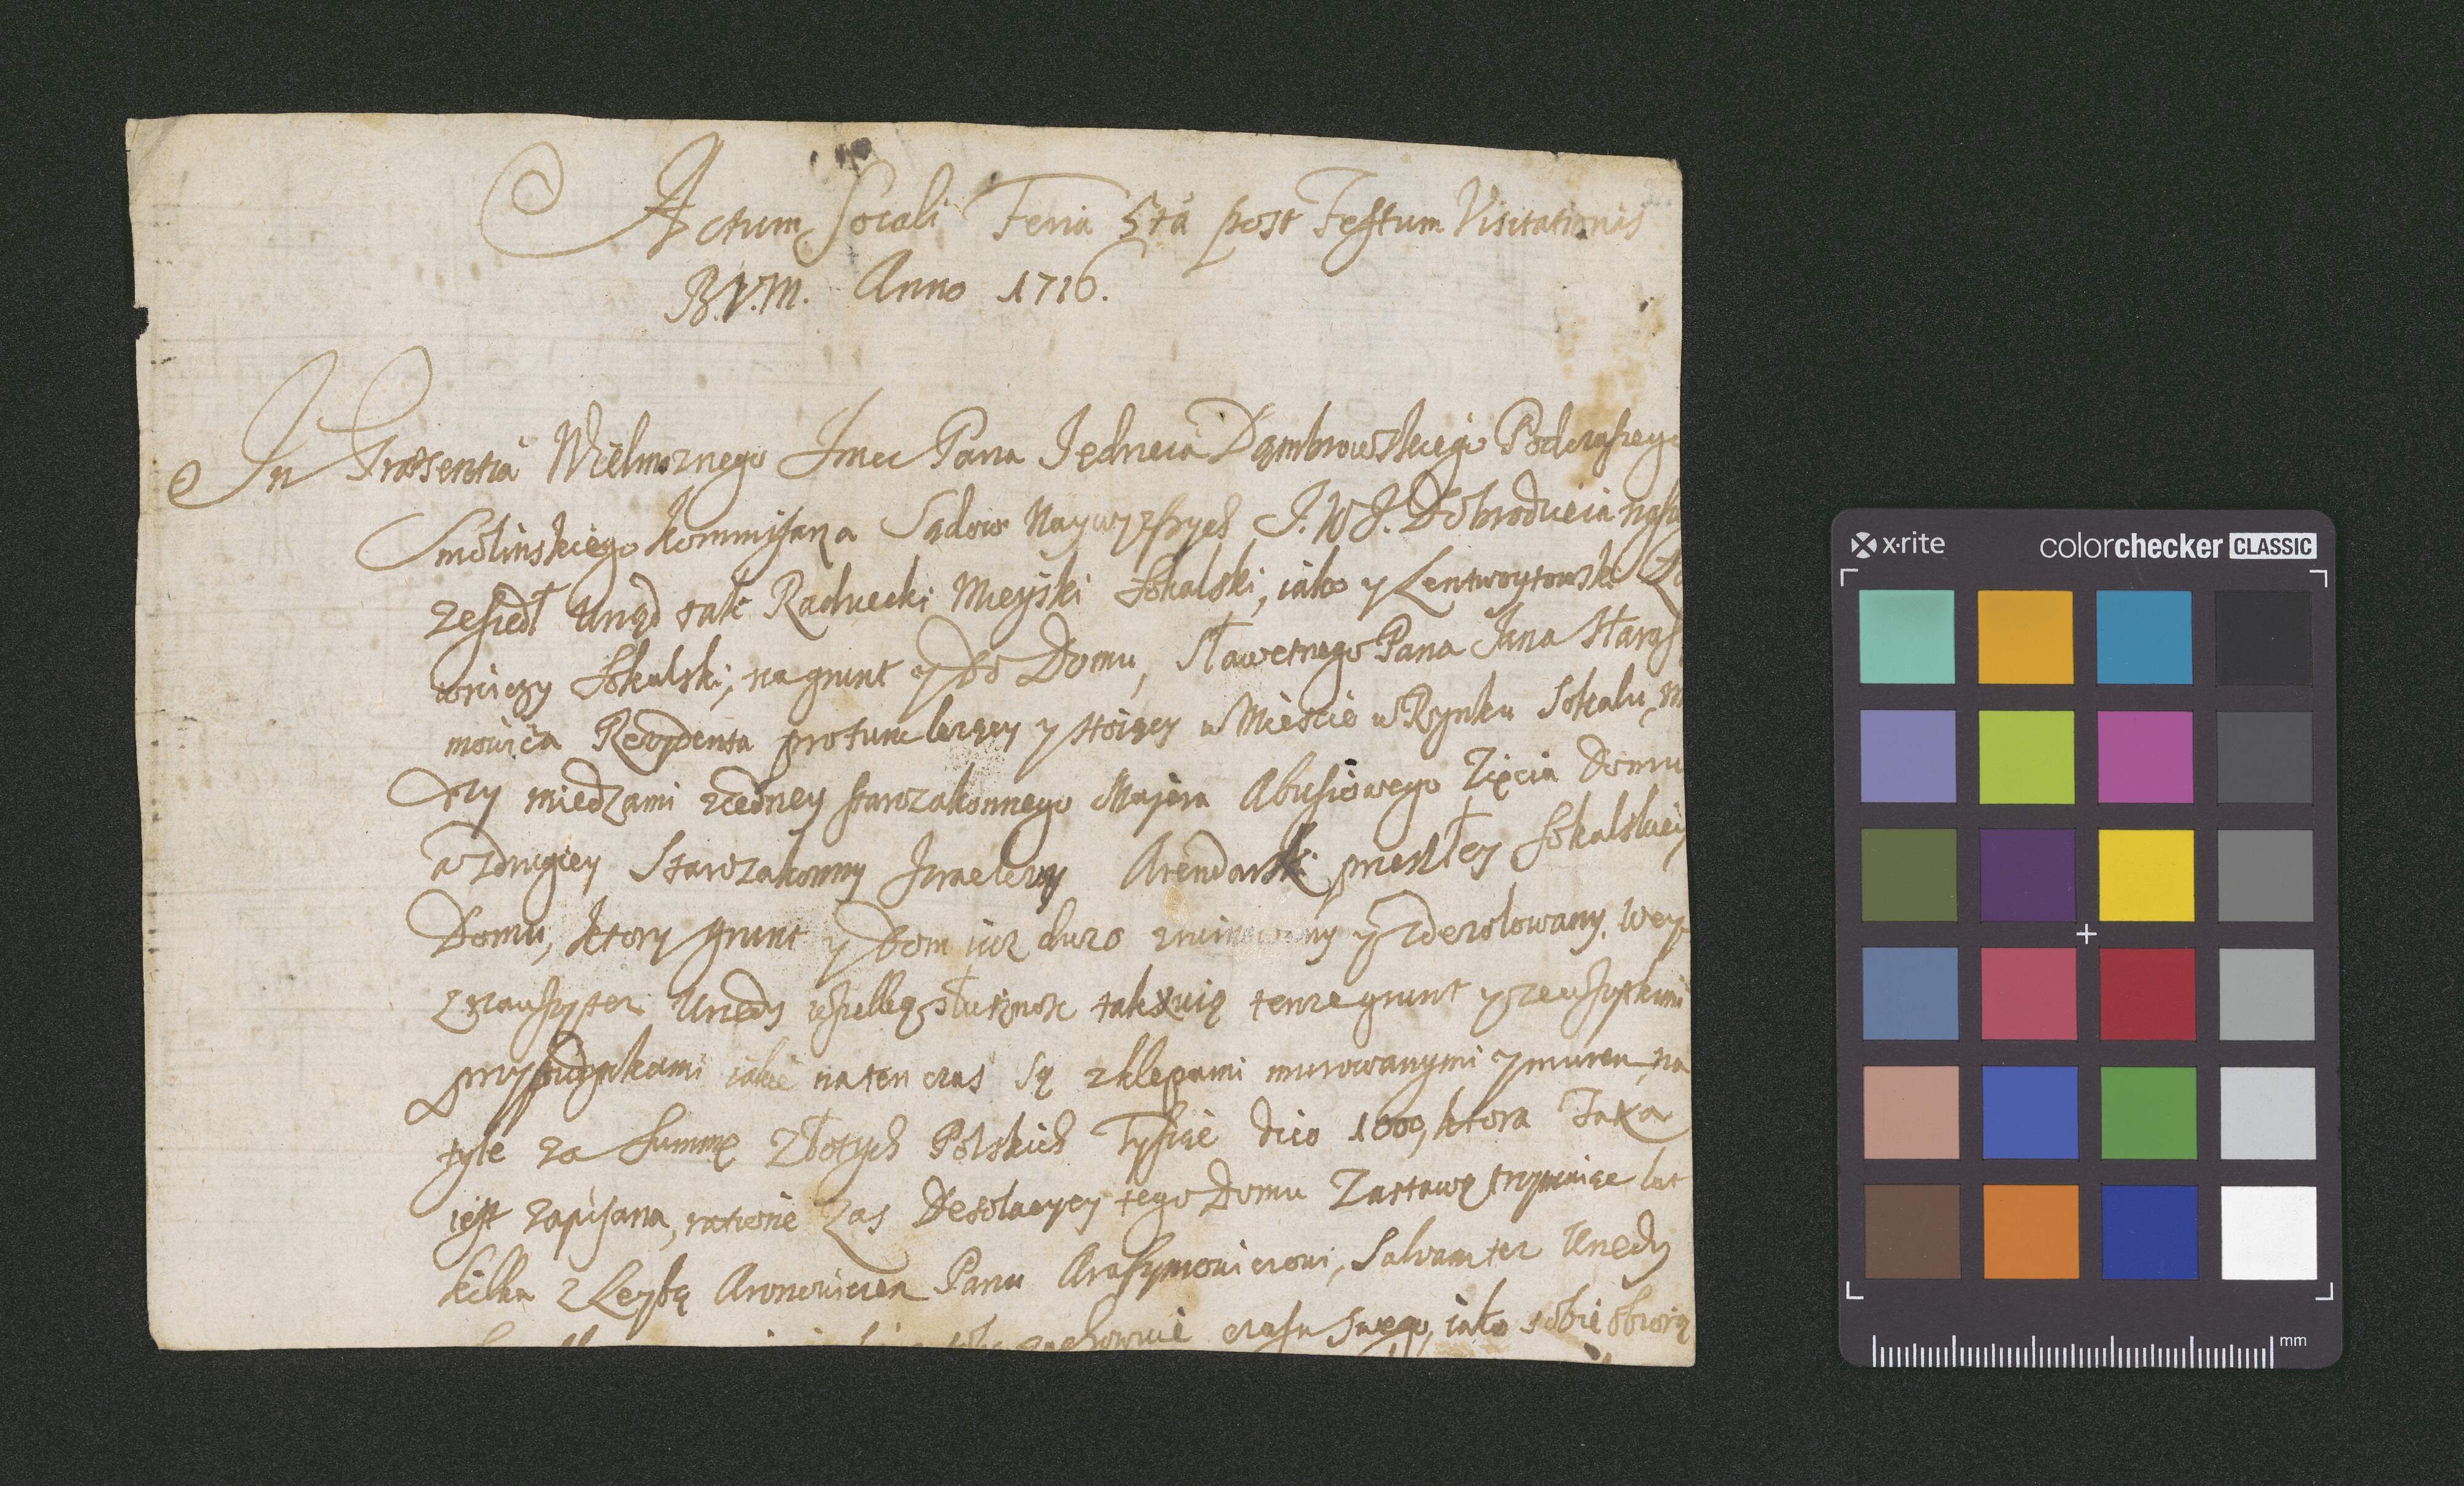 Actum Socali Feria 5ta post Festum Visitationis
B.V.M. Anno 1716.
In Præsentia Wielmoznego Imci Pana Jędrzeia Dąmbrowskiego Podczaszego
Smolinskiego Kommisarza Sądow Naywyzszych J. W J. Dobrodzieia
zesiedł Urząd tak Radziecki Mieyski Sokalski, iako y Lentwoytowski
wniczy Sokalski, na grunt y do Domu, Sławetnego Pana Jana
mowica Rezydenta protunc lezący y stoiący w Miescie w Rynku Sokalu,
dzy miedzami zedney starozakonnego Majera Abusiowego Zięcia Domu
a zdrugiey Starozakonny Izraelowy Arendarki przeszłey Sokalskiey
Domu, ktory grunt y Dom iuz duzo zruinowany y zdezolowany. Wey
zrawszy ten Urzędy wszelką słusznosc taxuią tenze grunt y zewszystkimi
przybudynkami iakie na ten czas są zklepami murowanymi y murem, na
tyle za Summę Złotych Polskich Tysiąc dico 1000, ktora Taxa
iest zapisana, ratione zas Desolacyey tego Domu Zastawę trzymaiąc lat
kilka z Leybą Aronowiczem Panu Araszymowiczowi, Salvam ten Urzędy
zachowuie czasu swego, iako sobie